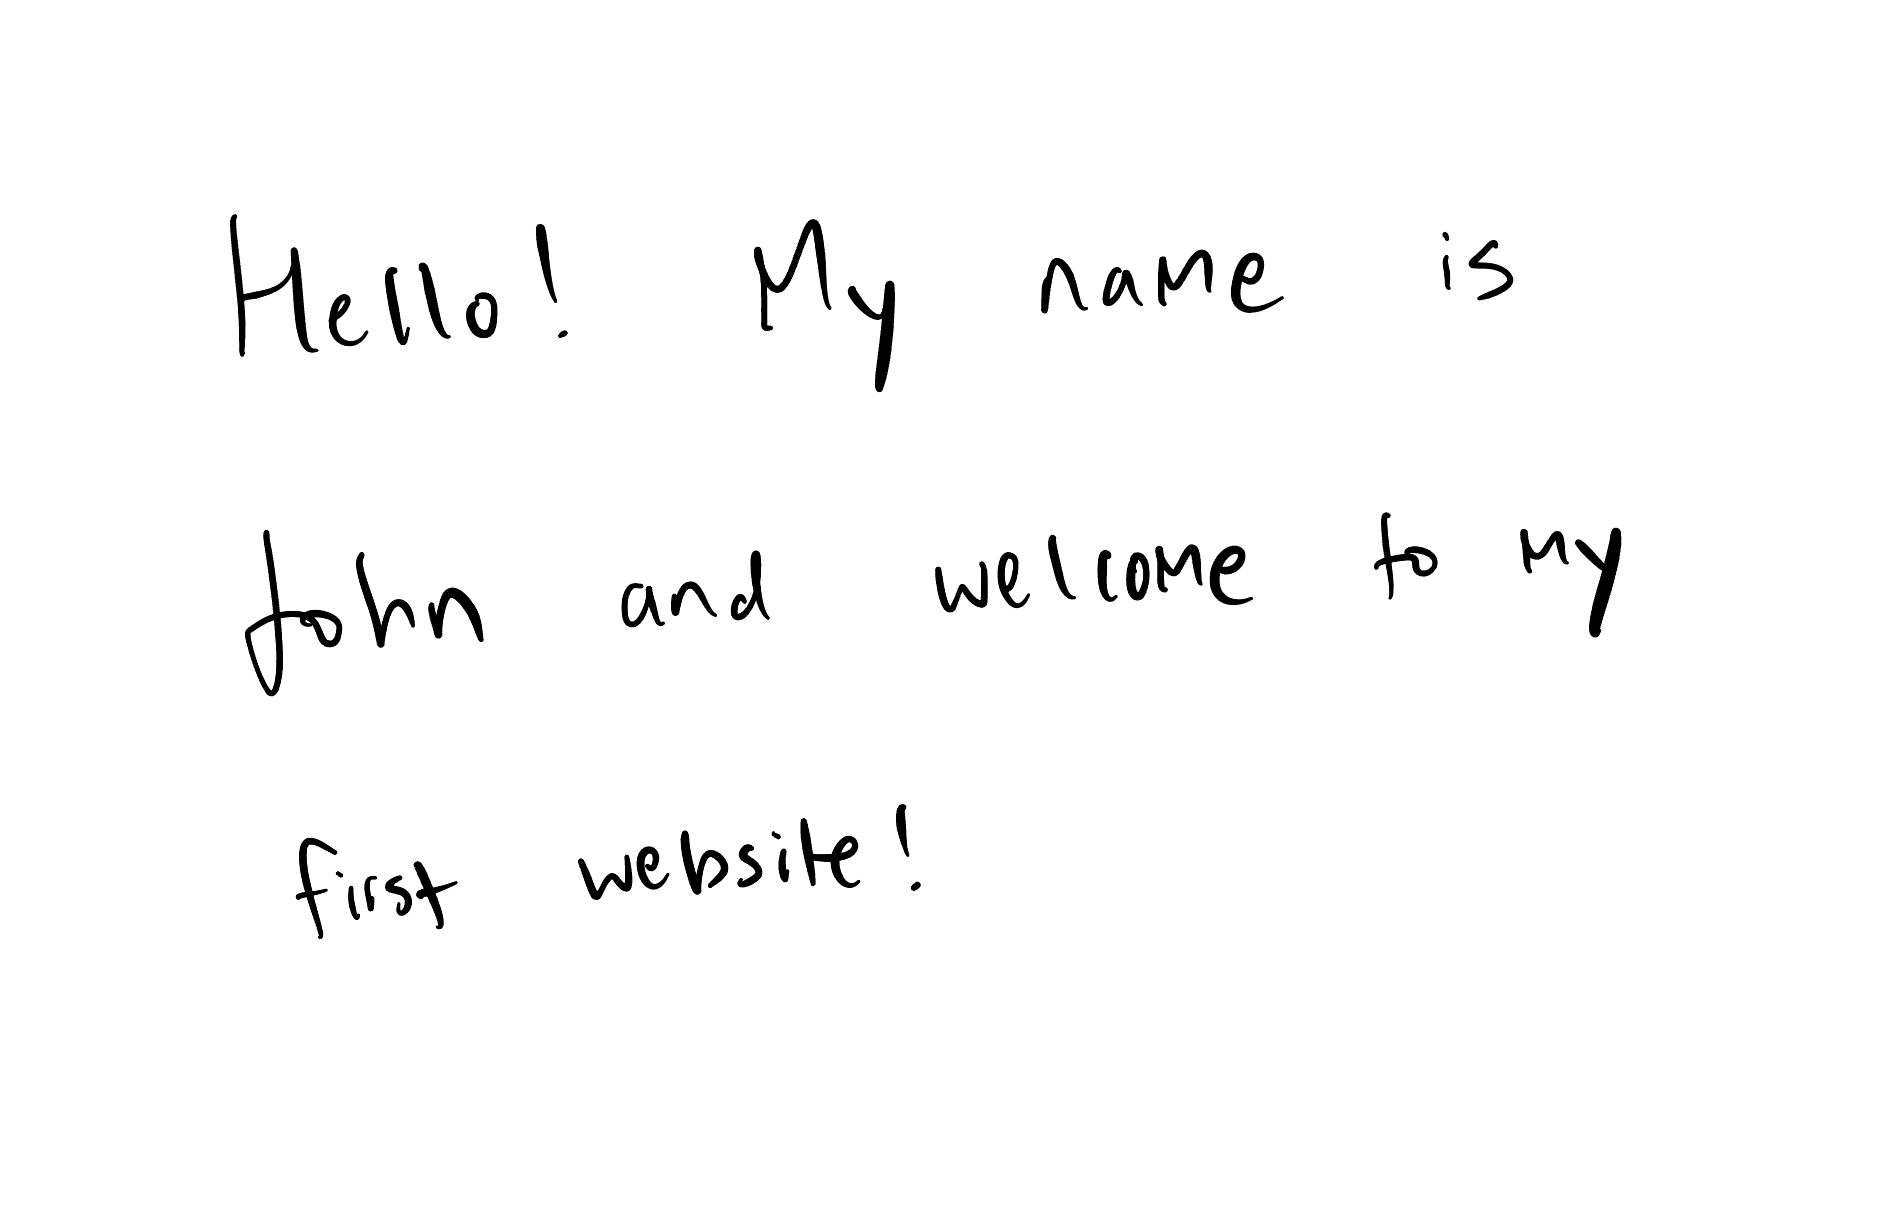 Hello! My name is
John and welcome to my
first website!